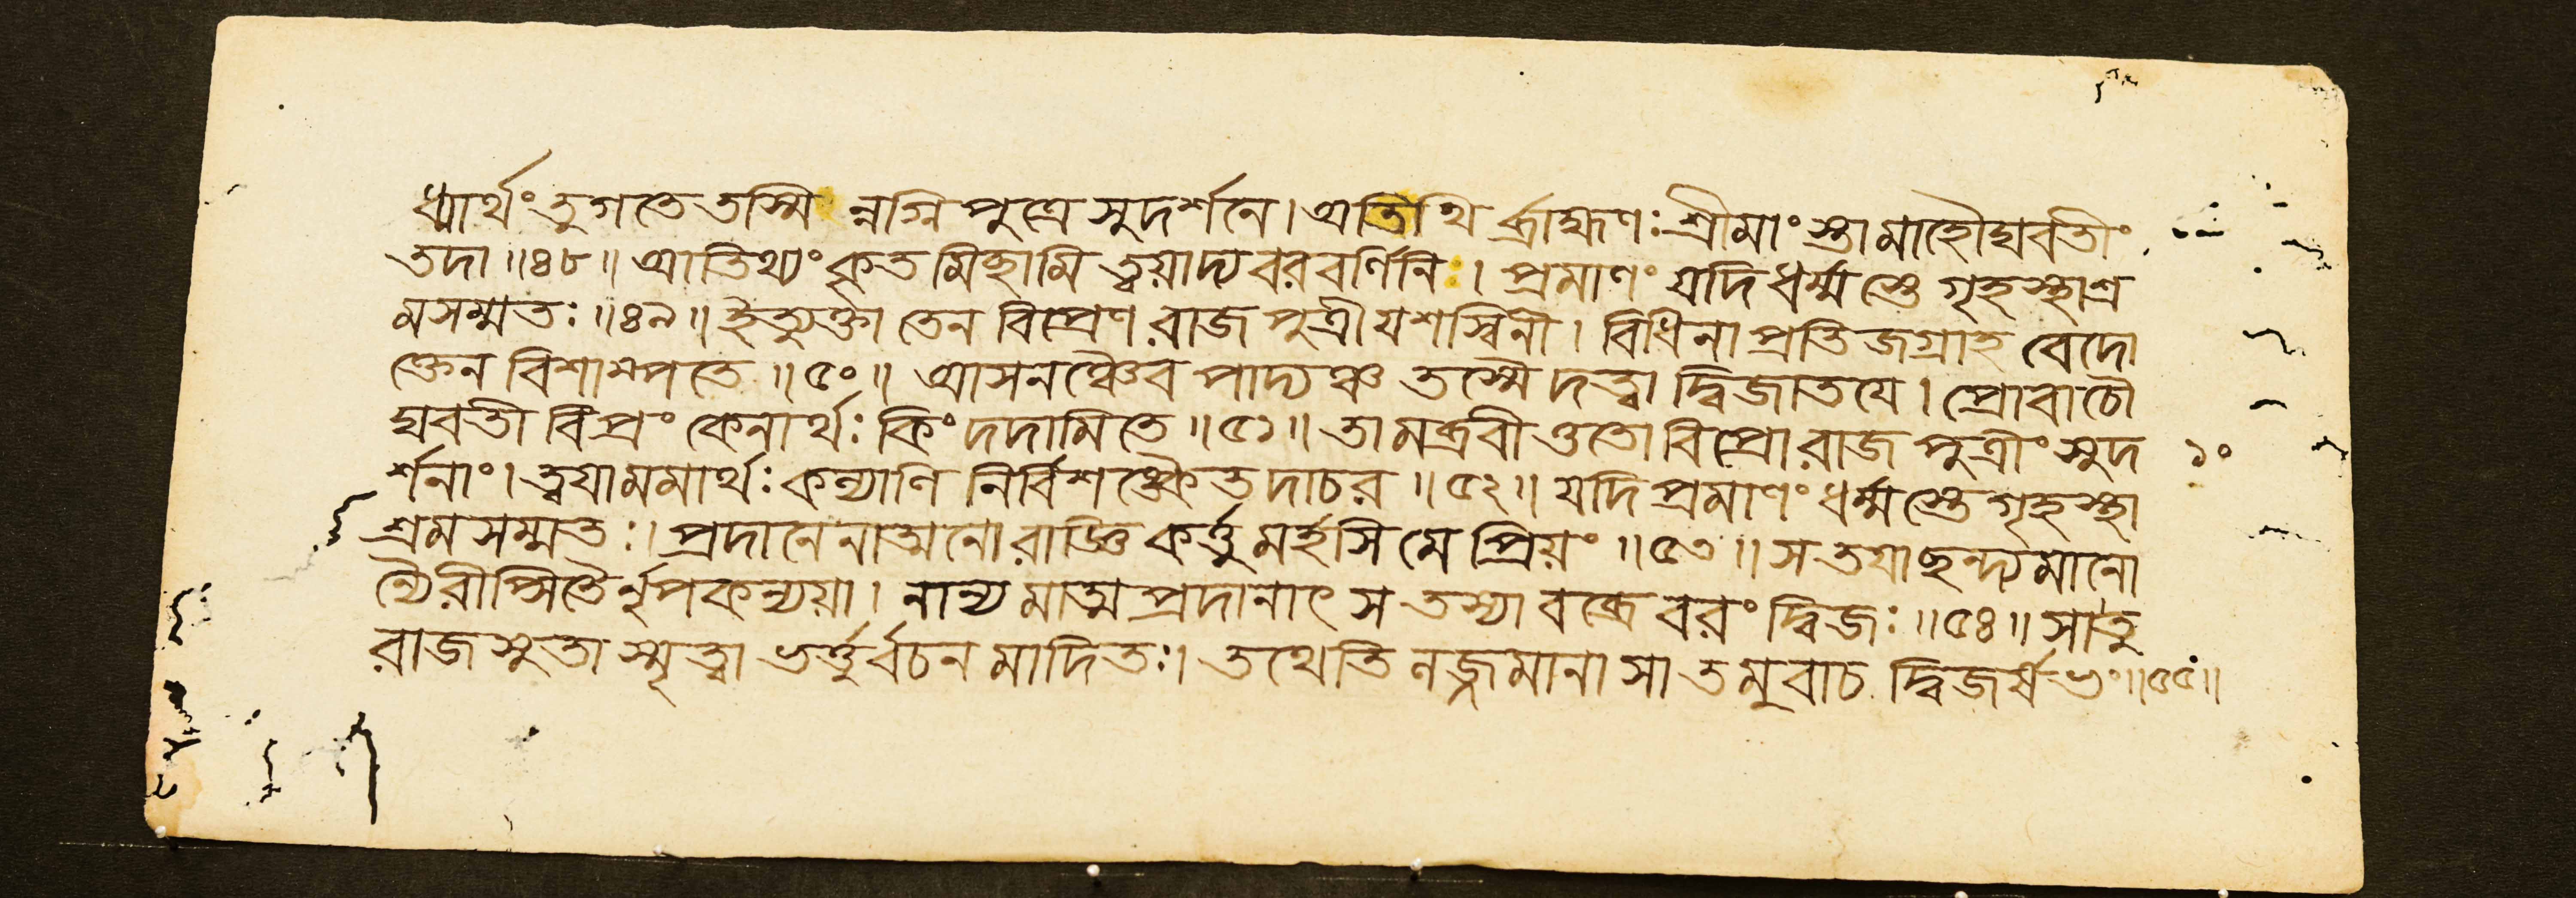 ধ্মার্থং তু গতে তস্মি ন্নগ্নি পুত্রে সুদর্শনে। অতিথি র্ব্রাহ্মণঃ শ্রীমাং স্তামাহৌঘবতীং
তদা ॥৪৮॥ আতিথ্যং কৃত মিচ্ছামি ত্বয়াদ্য বরবর্ণিনি। প্রমাণং যদি ধর্ম্ম স্তে গৃহস্থাশ্র
মসম্মতঃ ॥৪৯॥ ইত্যুক্তা তেন বিপ্রেণ রাজ পুত্রী যশস্বিনী। বিধিনা প্রতি জগ্রাহ বেদো
ক্তেন বিশাম্পতে ॥৫০॥ আসনঞ্চৈব পাদ্যঞ্চ তস্মৈ দত্ত্বা দ্বিজাতযে। প্রোবাচৌ
ঘবতী বিপ্রং কেনার্থঃ কিং দদামি তে ॥৫১॥ তামব্রবীত্ততো বিপ্রো রাজ পুত্রীং সুদ
র্শনাং। ত্বযা মমার্থঃ কল্যাণি নির্বিশঙ্কৈতদাচর ॥৫২॥ যদি প্রমাণং ধর্ম্ম স্তে গৃহস্থা
শ্রম সম্মতঃ। প্রদানেনাত্মনো রাজ্ঞি কর্ত্তু মর্হসি মে প্রিয়ং ॥৫৩॥ স তযা ছন্দ্যমানো
ন্যৈরীপ্সিতৈর্নৃপকন্যয়া। নান্য মাত্ম প্রদানাৎ স তস্যা বব্রে বরং দ্বিজঃ ॥৫৪॥ সা তু
রাজ সুতা স্মৃত্বা ভর্ত্তুর্বচন মাদিতঃ। তথেতি লজ্জমানা সা তমুবাচ দ্বিজর্ষভং ॥৫৫॥
১০